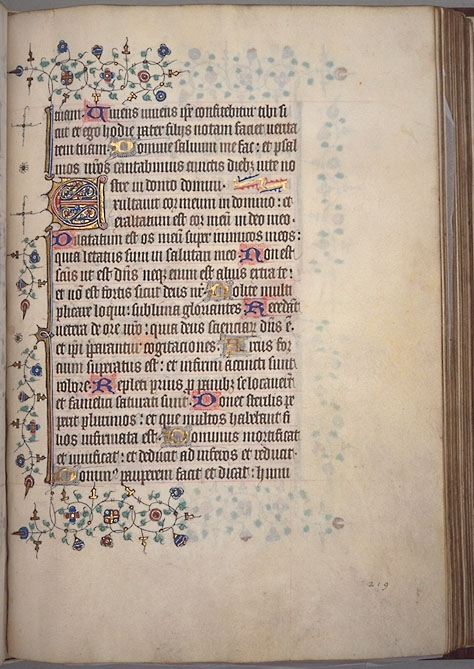 tuam. Viuens uiuens ip̄e confitebitur tibi si
cut et ego hodie pater filijs notam faciet uerita
tem tuam. Domine saluum me fac: et psal
mos nr̄os cantabimus cunctis diebꝫ uite no
stre in domo domini.
Exultauit cor meum in domino: et
exaltatum est cor meū in deo meo.
Dilatatum est os meū super inimicos meos:
quia letatus sum in salutari meo. Non est
scūs ut est dn̄s neqꝫ enim est alius extra te:
et nō est fortis sicut deus nr̄. Nolite multi
plicare loqui: sublimia gloriantes. Recedāt
uetera de ore ur̄o: quia deus scienciaꝝ dn̄s ē.
et ip̄i p̄parantur cogitationes. Arcus for
cium supatus est: et infirmi accincti sunt
robore. Repleti prius ꝓ panibꝫ se locauerūt
et famelici saturati sunt. Donec sterilis pe
perit plurimos: et que multos habebat fi
lios infirmata est. Dominus mortificat
et uiuificat: et deducit ad inferos et reducit.
Dominꝰ pauperem facit et ditat: humi
219